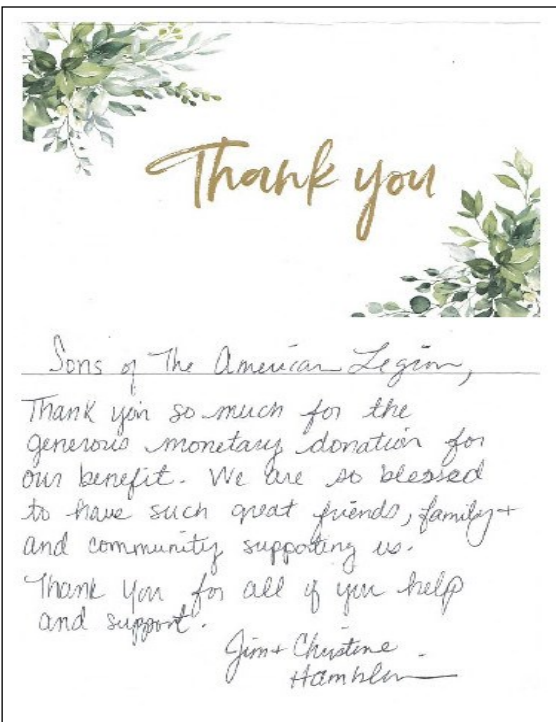 Thank you
Sons of The American Legion,
Thank you so much for the
generous monetary donation for
our benefit. We are so blessed
to have such great friends, family +
and community supporting us.
Thank You for all of you help
and support.
Jim + Christine